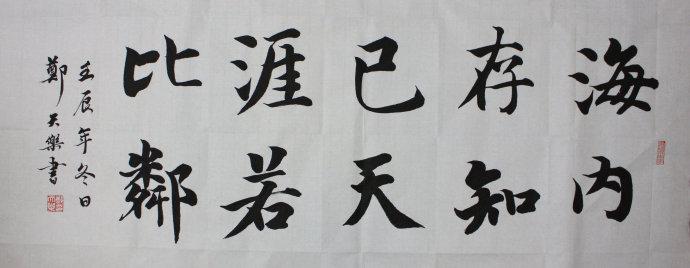 海内
存知
已天
涯若
比鄰
壬辰年冬日
鄭天樂書